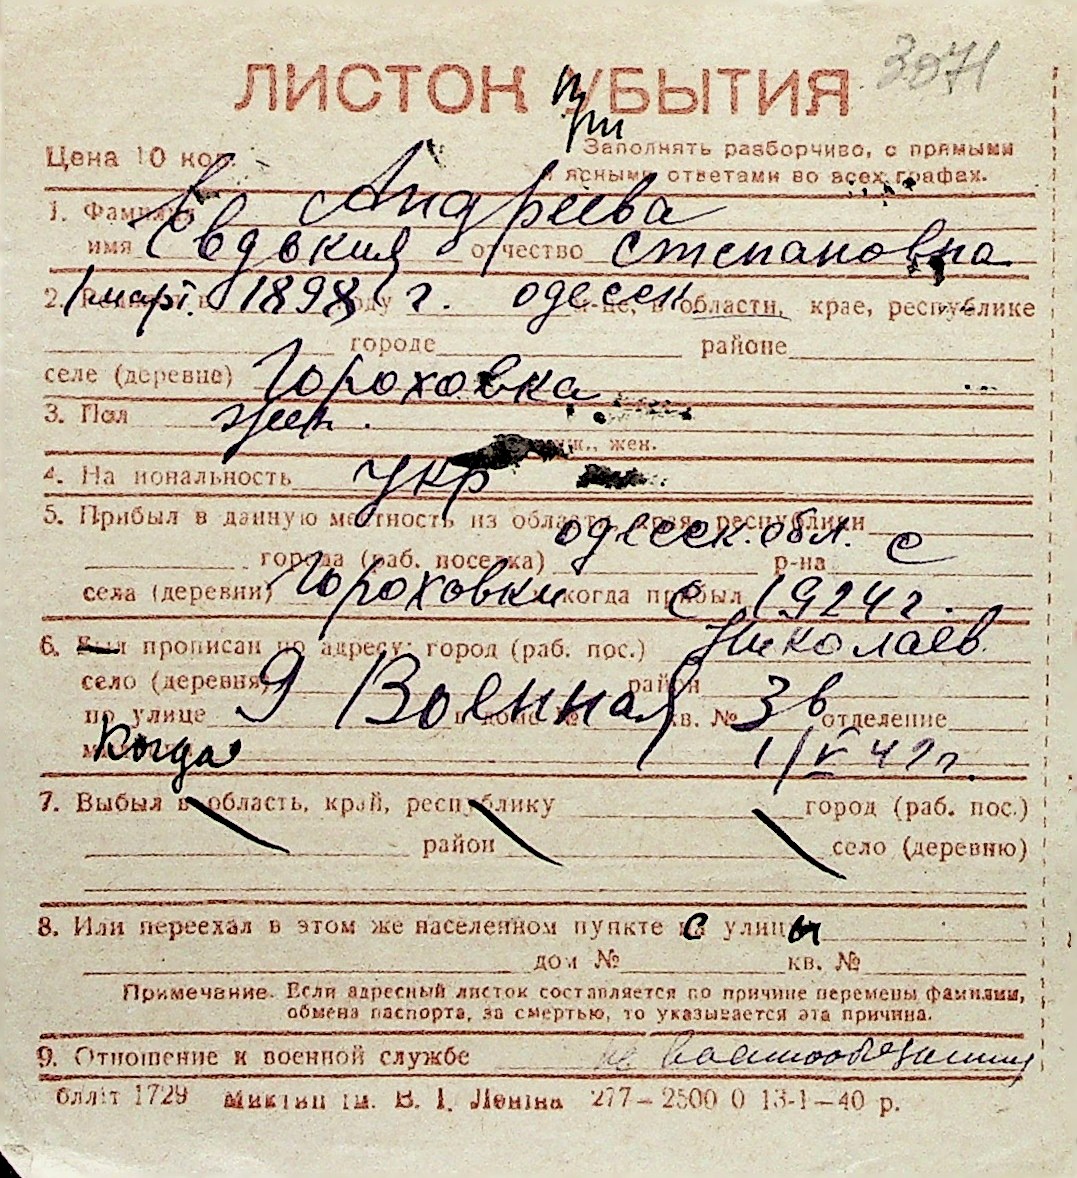 3071
ЛИСТОК УБЫТИЯ
При
Цена 10 коп.
Заполнять разборчиво, с прямыми
и ясными ответами во всех графах.
1. Фамилия Андреева
имя Евдокия отчество Степановна
2. 1 март. 1898 г. одесск. области, крае, республике
городе районе
селе (деревне) Гороховка
3. Пол жен.
муж., жен.
4. Национальность укр
5. Прибыл в данную местность из области, края, республики
одесск. обл. с
города (раб. поселка) р-на
села (деревни) Гороховки когда прибыл с 1924 г.
6. Был прописан по адресу: город (раб. пос.) Николаев
село (деревня) район
по улице 9 Военная в доме № кв. № 3в отделение
Когда 1/V 42 г.
7. Выбыл в область, край, республику город (раб. пос.)
район село (деревню)
8. Или переехал в этом же населенном пункте с улицы
дом № кв. №
Примечание. Если адресный листок составляется по причине перемены фамилии,
обмена паспорта, за смертью, то указывается эта причина.
9. Отношение к военной службе не военнообязанная
1729 В. І. Леніна 277—2500 0 13-1—40 р.